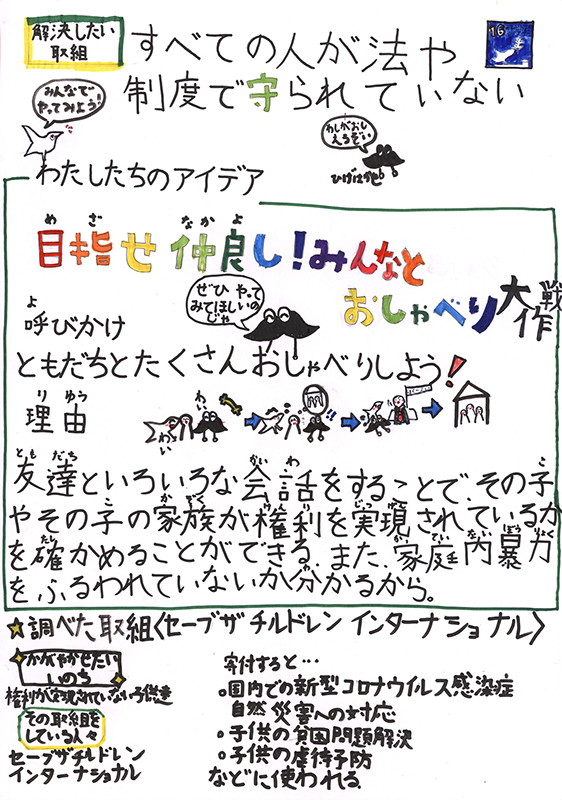 解決したい
取組
すべての人が法や
制度で守られていない
16
みんなで
やってみよう!
わしがおし
えるぞい
わたしたちのアイデア
めざ なかよ
目指せ仲良し!みんなと
おしゃべり大作戦
ぜひやって
みてほしいの
じゃ
よ
呼びかけ
ともだちとたくさんおしゃべりしよう!
りゆう
理由
わい
わい
ともだち かいわ こ
友達といろいろな会話をすることで、その子
こ かぞく けんり じつげん
やその子の家族が権利を実現されているか
たし かてい ないぼうりょく
を確かめることができる。また、家庭内暴力
わ
をふるわれていないか分かるから。
☆調べた取組〈セーブザチルドレンインターナショナル〉
かがやかせたい
いのち
権利が実現されていない子供達
その取組を
している人々
セーブザチルドレン
インターナショナル
寄付すると…
。国内での新型コロナウイルス感染症
自然災害への対応
。子供の貧困問題解決
。子供の虐待予防
などに使われる。